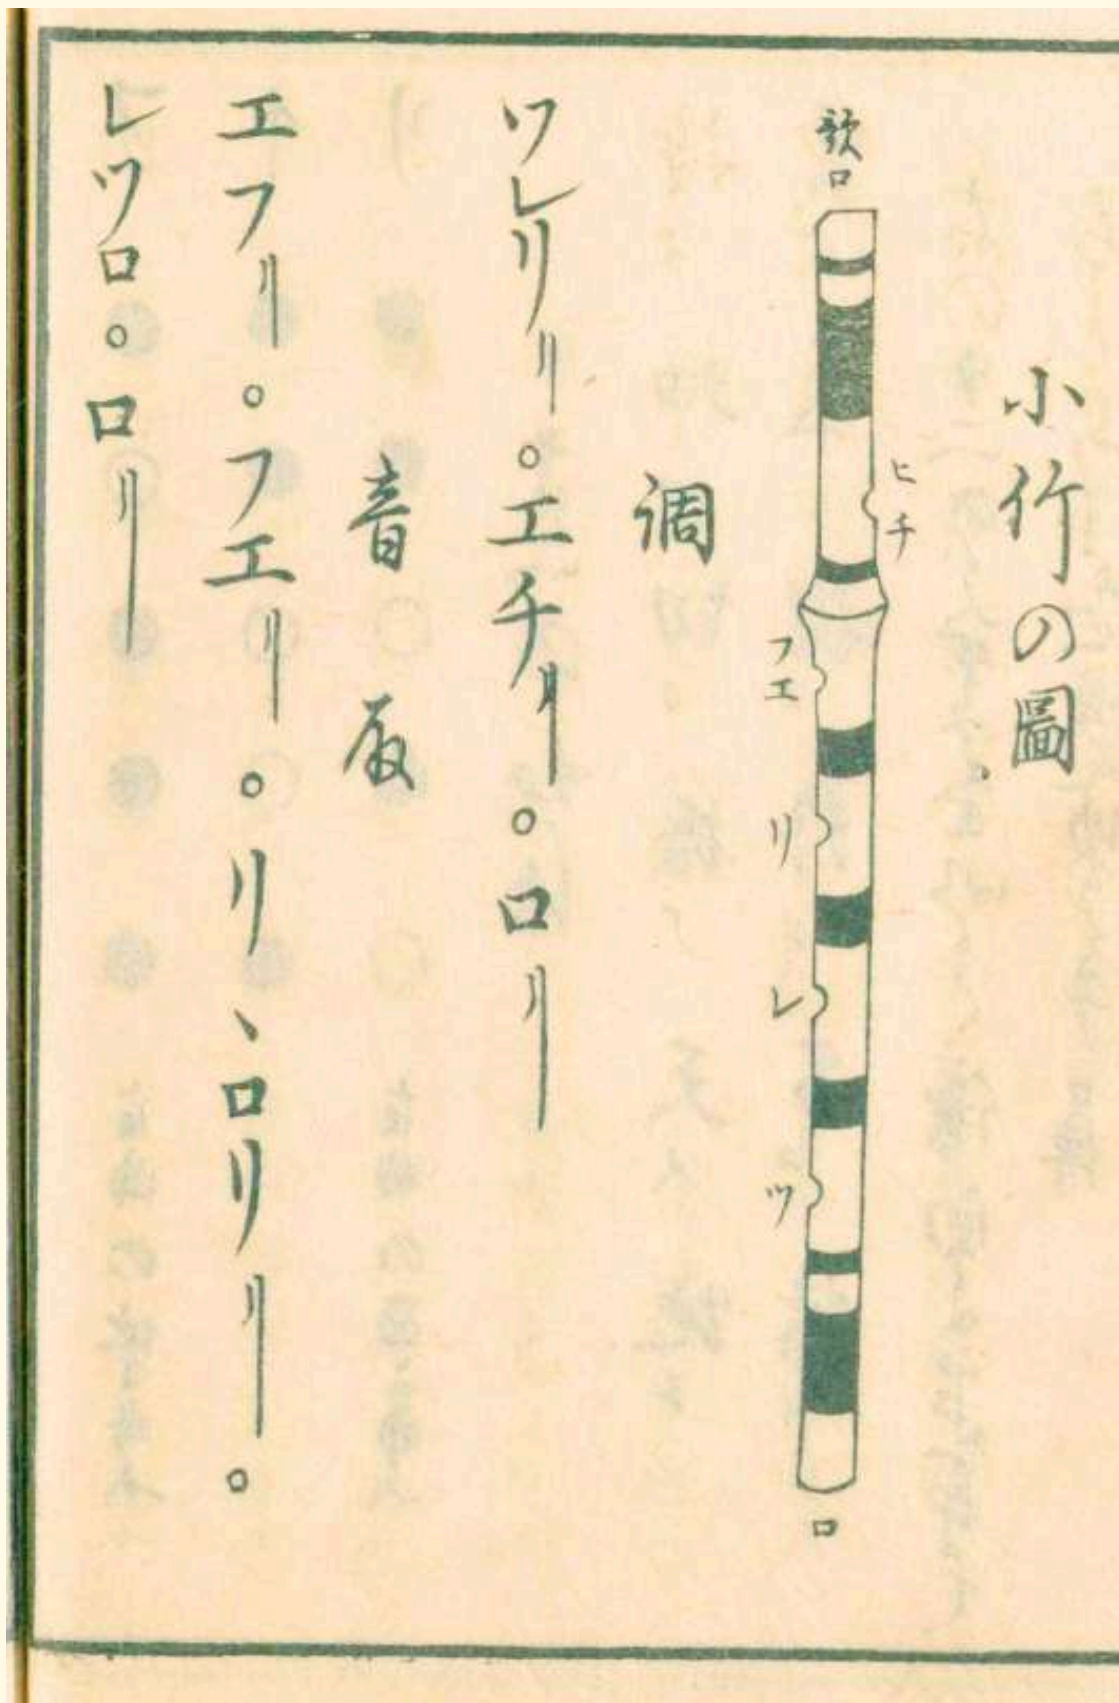 小竹の圖
歌口
ヒチ
フエ
リ
レ
ツ
ロ
調
ツレリ〢。エチ〢。ロ〢
音取
エフ〢。フエ〢。リ、ロリ〢。
レツロ。ロ〢